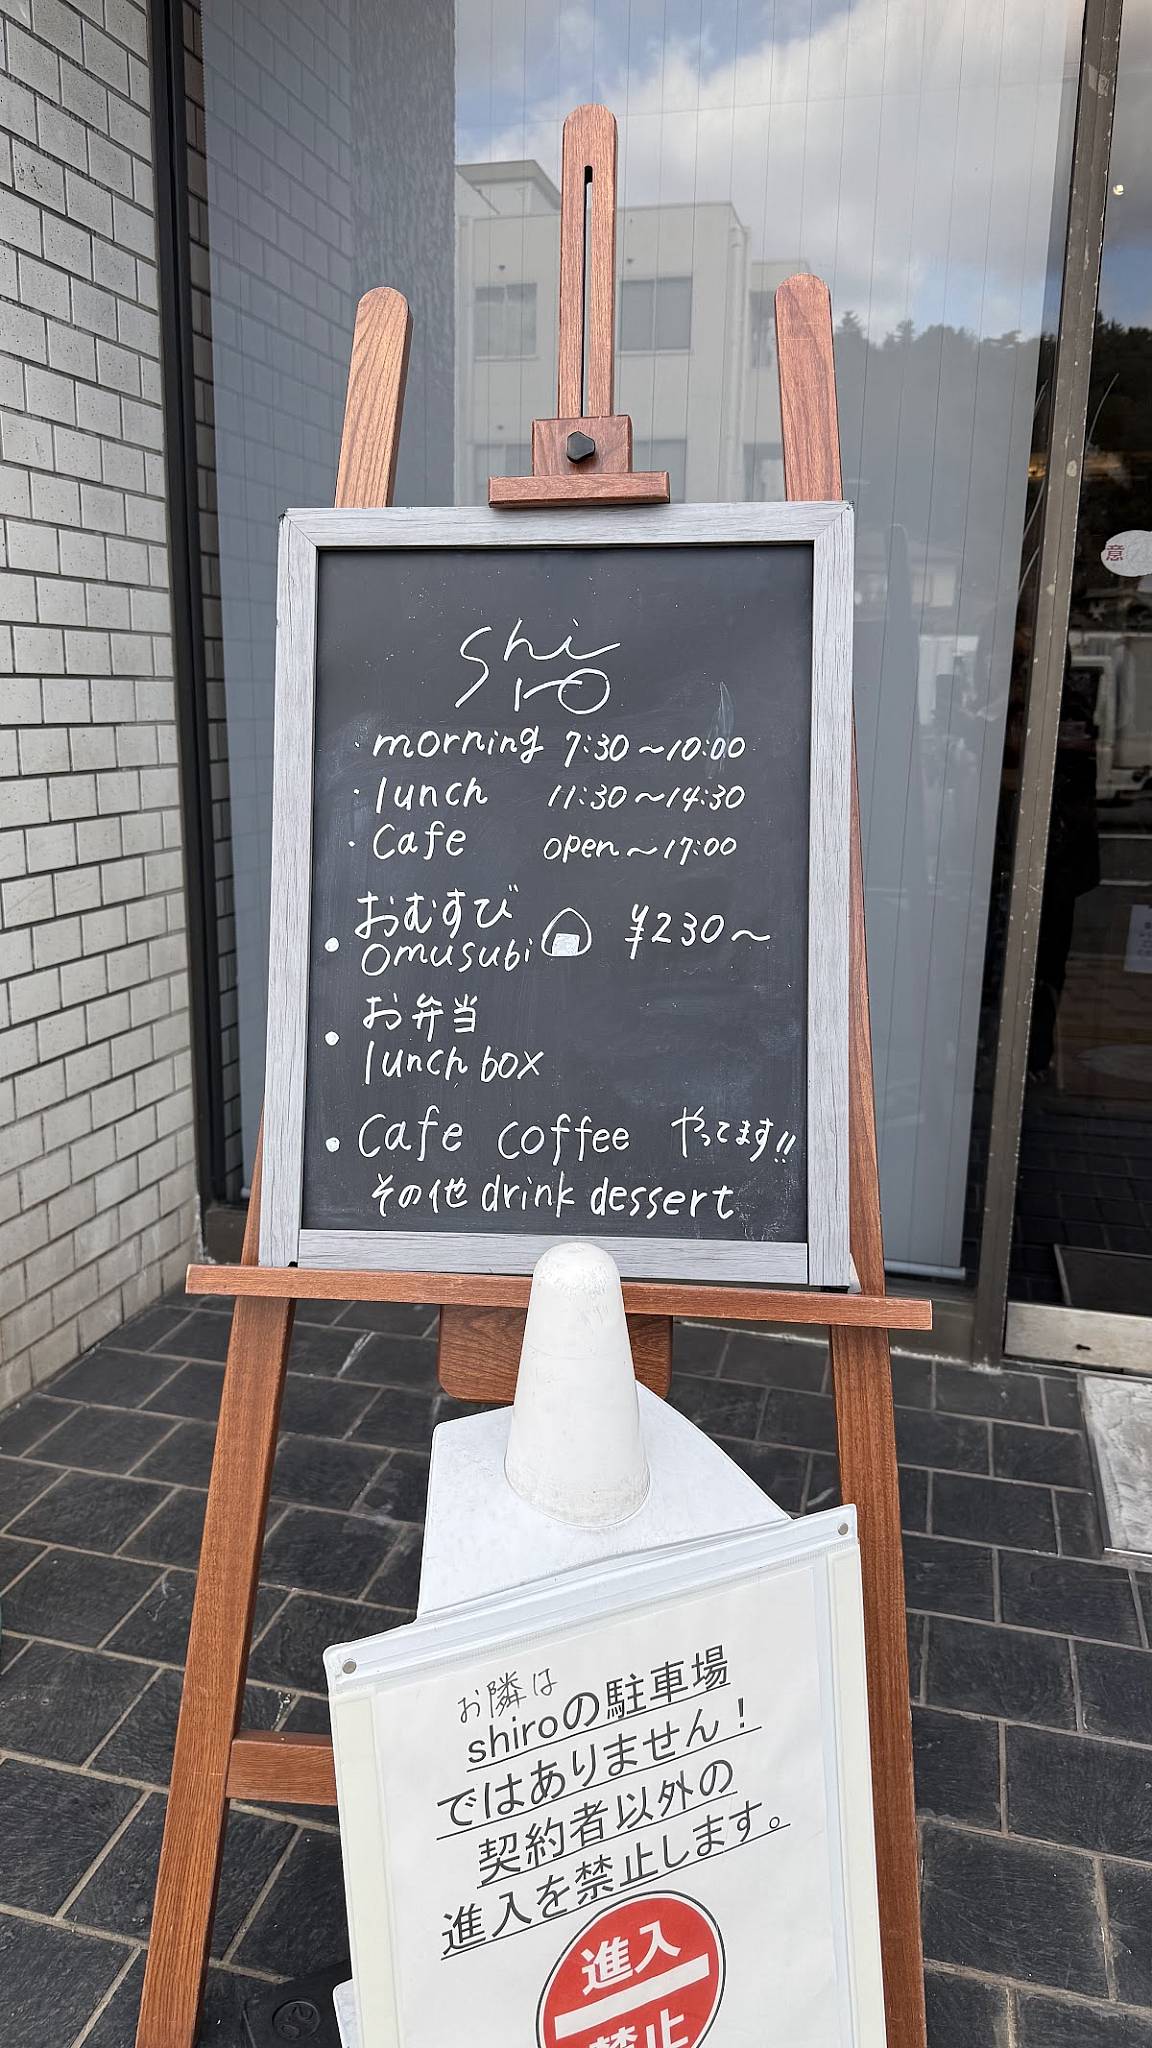 shi
ro
・morning 7:30～10:00
・lunch 11:30～14:30
・Cafe open～17:00
おむすび
● omusubi ¥230～
お弁当
● lunch box
● Cafe coffee やってます!!
その他 drink dessert
お隣は
shiroの駐車場
ではありません！
契約者以外の
進入を禁止します。
進入
禁止
意